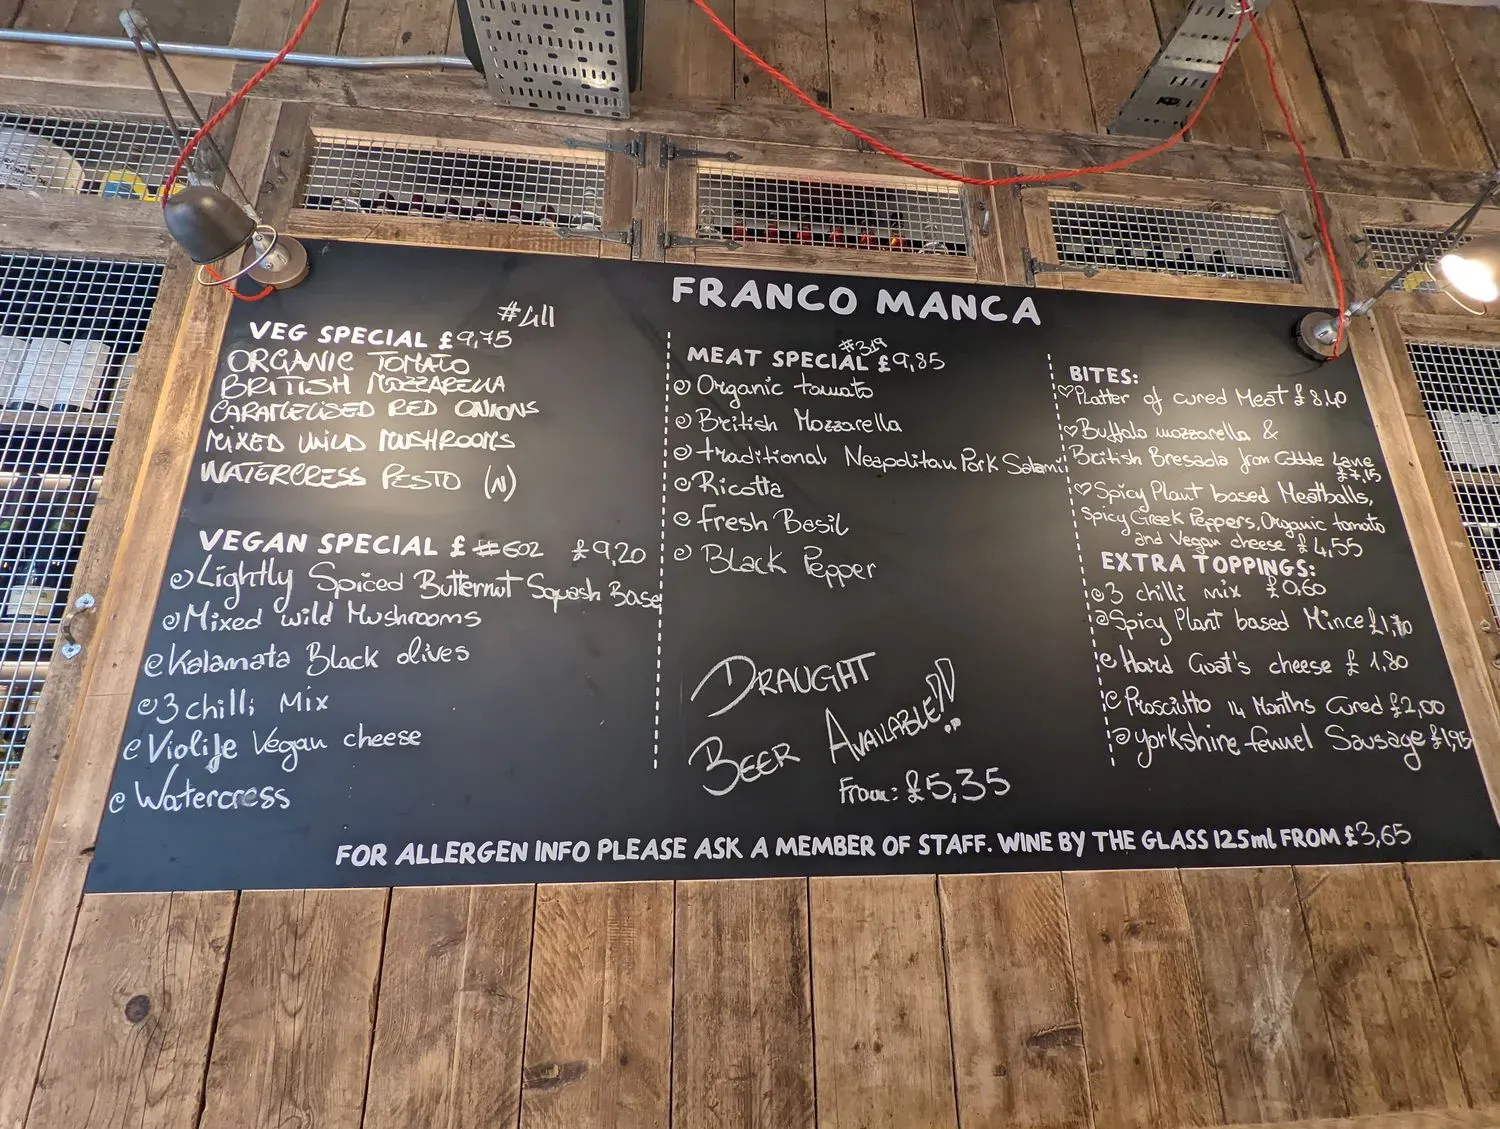 FRANCO MANCA
#411
VEG SPECIAL £9,75
ORGANIC TOMATO
BRITISH MOZZARELLA
CARAMELISED RED ONIONS
MIXED WILD MUSHROOMS
WATERCRESS PESTO (N)
VEGAN SPECIAL £ #602 £9,20
Lightly Spiced Butternut Squash Base
Mixed wild Mushrooms
Kalamata Black olives
3 chilli Mix
Violife Vegan cheese
Watercress
#319
MEAT SPECIAL £9,85
Organic tomato
British Mozzarella
traditional Neapolitan Pork Salami
Ricotta
fresh Basil
Black Pepper
DRAUGHT
BEER AVAILABLE!!
From: £5,35
BITES:
Platter of cured Meat £8,40
Buffalo mozzarella &
British Bresaola from Cobble Lane
£7,15
Spicy Plant based Meatballs,
Spicy Greek Peppers, Organic tomato
and Vegan cheese £4,55
EXTRA TOPPINGS:
3 chilli mix £0,60
Spicy Plant based Mince £1,70
Hard Goat's cheese £1,80
Prosciutto 14 Months Cured £2,00
Yorkshire fennel Sausage £1,95
FOR ALLERGEN INFO PLEASE ASK A MEMBER OF STAFF. WINE BY THE GLASS 125ml FROM £3,65